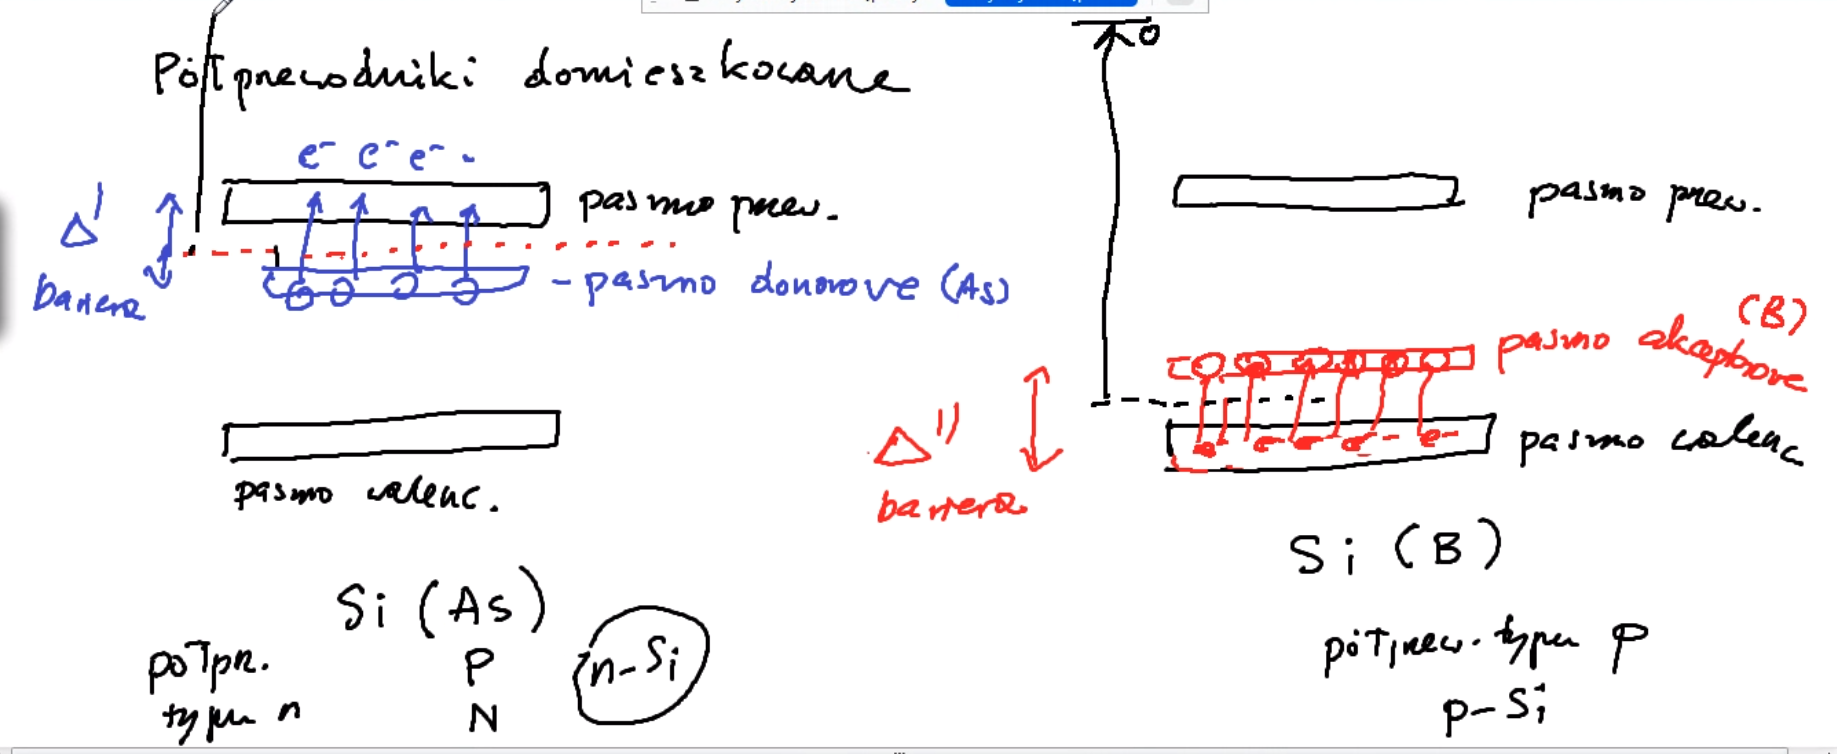 Półprzewodniki domieszkowane
e⁻ e⁻ e⁻ -
pasmo przew.
Δ'
bariera
- pasmo donorowe (As)
pasmo walenc.
Si (As)
półprz.
typu n
P
N
n-Si
0
pasmo przew.
(B)
pasmo akceptorowe
Δ''
bariera
e⁻ e⁻ e⁻ e⁻ e⁻
pasmo walenc
Si (B)
półprzew. typu p
p-Si